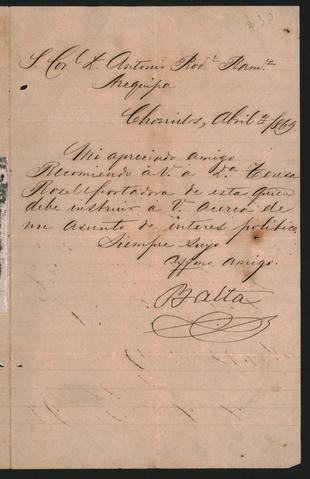 $30
S Cor.l D. Antonio Rod.z Ram.z
Arequipa
Chorrillos, Abril 3/1869.
Mi apreciado amigo
Recomiendo a V. a D.a Teresa
portadora de esta quien
debe instruir á V. acerca de
un asunto de interes politico.
Siempre suyo
Affmo amigo.
Balta